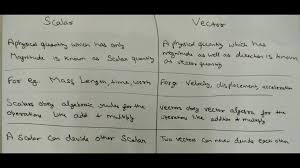 Scalar
A physical quantity which has only
Magnitude is known as Scalar quantity
For eg. Mass Length, time, work
Scalars obey algebraic rules for the
operations like add & multiply
A Scalar can divide other Scalar
Vector
A physical quantity which has
magnitude as well as direction is known
as vector quantity
For eg. Velocity, displacement, acceleration
Vectors obey vector algebra for the
operations like addition & multiply
Two vectors can never divide each other